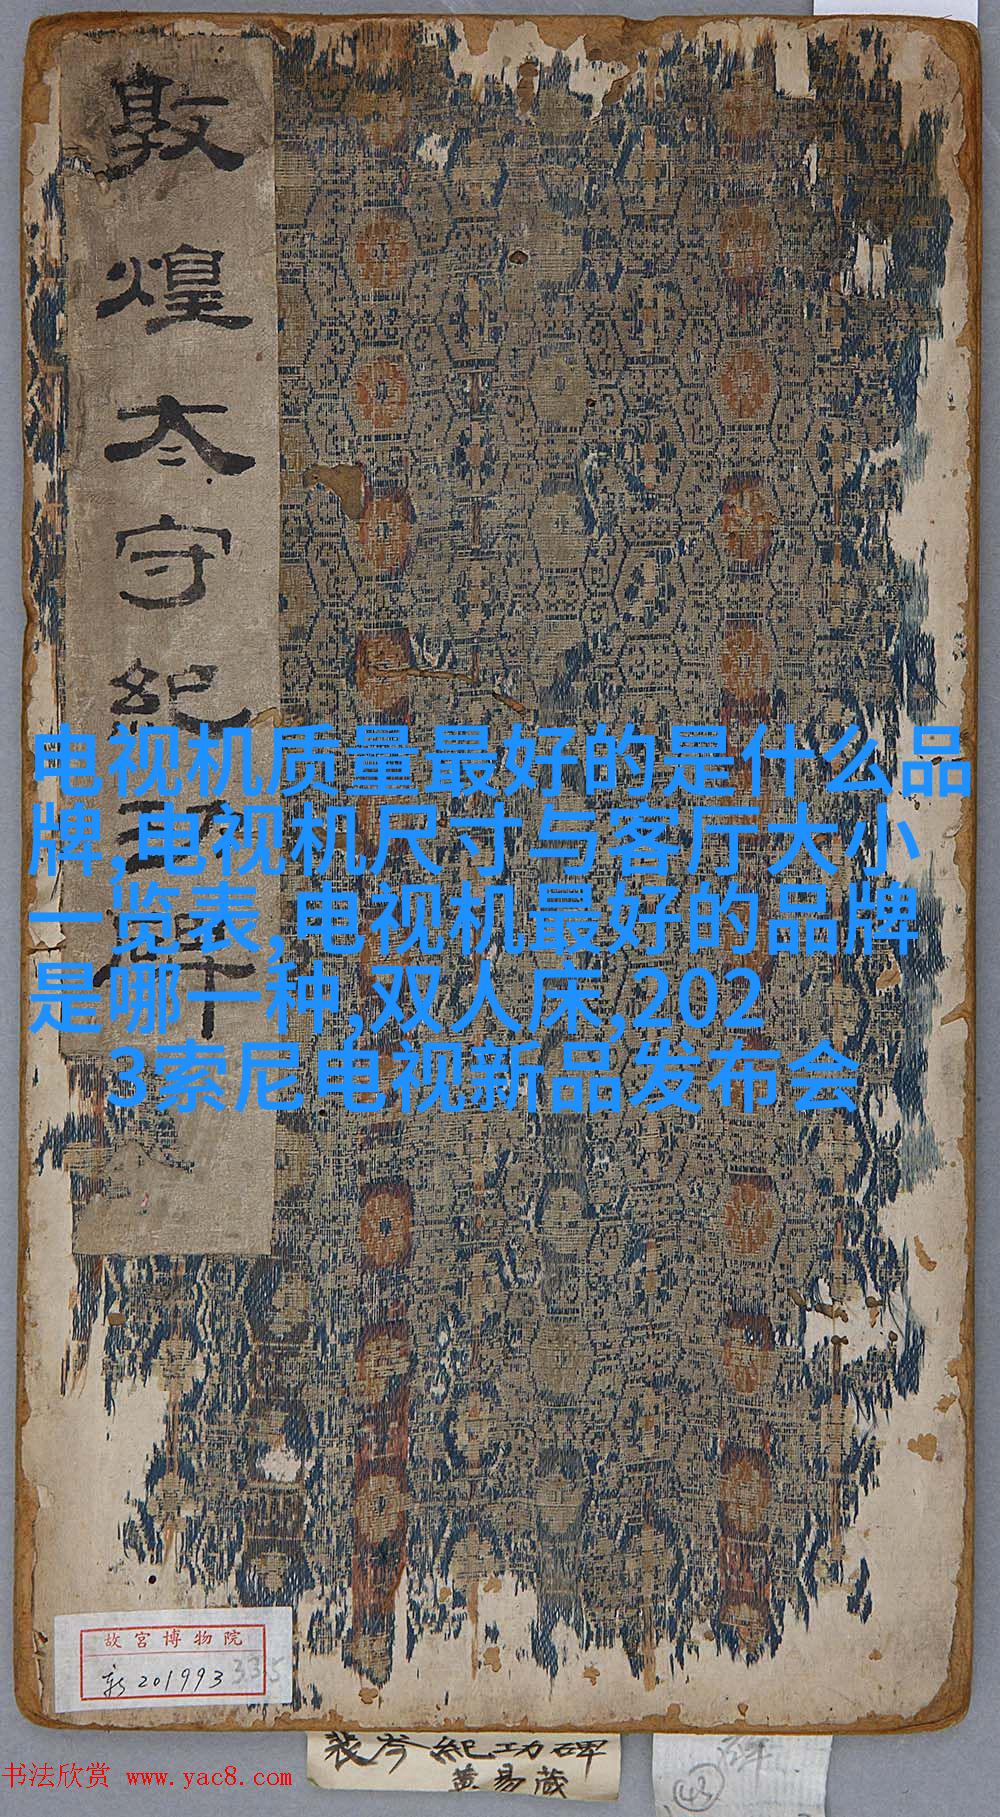 敦煌太守紀功碑
电视机质量最好的是什么品
牌,电视机尺寸与客厅大小
一览表,电视机最好的品牌
是哪一种,双人床,202
3索尼电视新品发布会
故宫博物院
新201993
335
裴岑紀功碑
黄易藏
书法欣赏 www.yac8.com